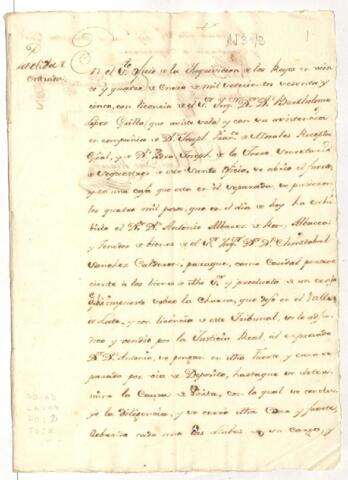 En el Sto. Oficio de la Inquisicion de los Reyes en veinte
y quatro de Enero de mil setecientos sesenta y
cinco, con licencia de el Sr. Inqor. Dr. Dn. Bartholome
Lopez Grillo, que asiste solo, y con asistencia
en compañia de Joseph
Gral. y Dn. Joseph de la Torre Secretario
de Sequestros de este Santo Oficio, se abrió el fuerte,
y en una caja que está en el separada, se pusieron
los quatro mil pesos, que en el dia de hoy ha exhi-
bido el Dr. Dn. Antonio Albarez de Ron, Albacea
y tenedor de bienes de el Sr. Inqor. Dr. Dn. Christobal
Sanchez Calderon; para que, como cantidad pertene
ciente a los bienes de dho Sr. y producto de un censo
impuesto sobre la Chacra, que dejó en el Valle
de Late, y con licencia de este Tribunal, se le adju-
dicó y vendió por la Justicia Real, al expresado
Dr. Dn. Antonio, se pongan en dicho Fuerte, y caxa se-
parada por via de Deposito, hasta que se deter-
mine la Causa de Visita, con lo qual se conclu-
yó la diligencia, y se cerró dha Caxa y fuerte,
llebando cada uno las llabes de su cargo, y